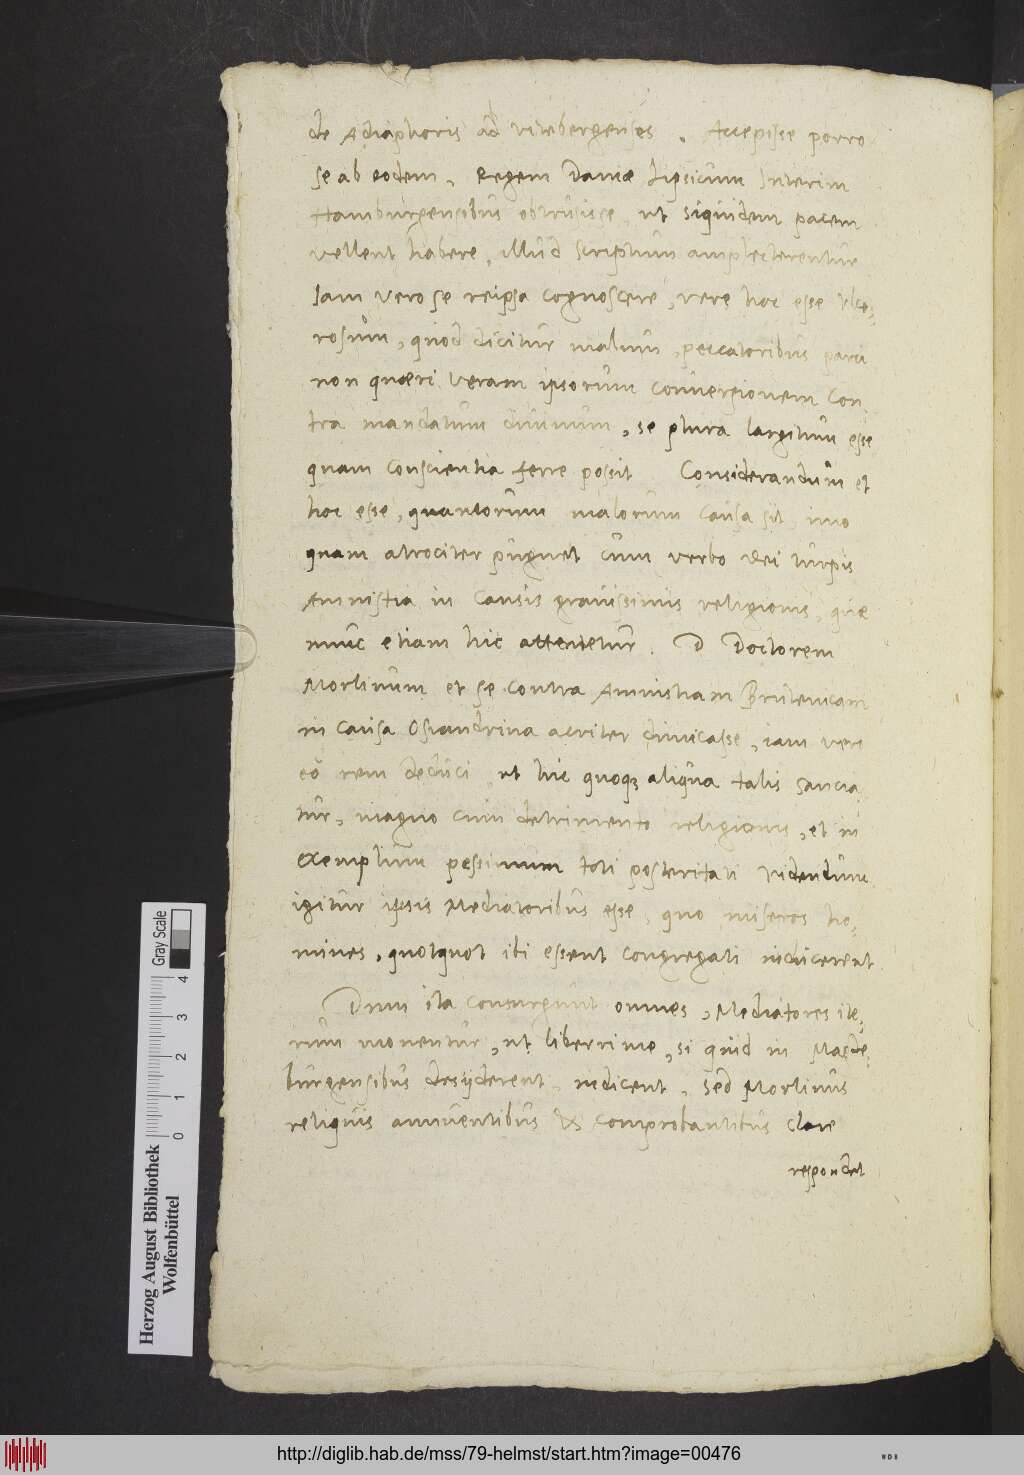 de Adiaphoris ad vitebergenses. Accepisse porro
se ab eodem, Regem Daniæ Lipsicum Interim
Hamburgensibus obtrusisse, ut siquidem pacem
vellent habere, illud scriptum amplecterentur
Iam vero se reipsa cognoscere, vere hoc esse Ulce-
rosum, quod dicitur malum, peccatoribus parci
non quæri veram ipsorum conversionem con
tra mandatum divinum, se plura largitum esse
quam conscientia ferre possit Considerandum et
hoc esse, quantorum malorum causa sit, imo
quam atrociter pugnet cum verbo Dei turpis
Amnistia in causis gravissimis religionis, quæ
nunc etiam hic attentetur. D Doctorem
Morlinum et se contra Amnistiam Prutenicam
in causa Osiandrina acriter dimicasse, iam vero
eo rem deduci ut hic quoq; aliqua talis sancia
tur, magno cum detrimento religionis, et in
exemplum pessimum toti posteritati Videndum
igitur ipsis Mediatoribus esse, quo miseros ho-
mines, quotquot ibi essent congregati inducerent
Dum ita consurgunt omnes, Mediatores ite-
rum monentur, ut liberrime, si quid in Magde-
burgensibus desyderent, indicent, sed Morlinus
reliquis annuentibus & comprobantibus clare
respondet
Herzog August Bibliothek
Wolfenbüttel
Gray Scale
0 1 2 3 4
http://diglib.hab.de/mss/79-helmst/start.htm?image=00476
WDB